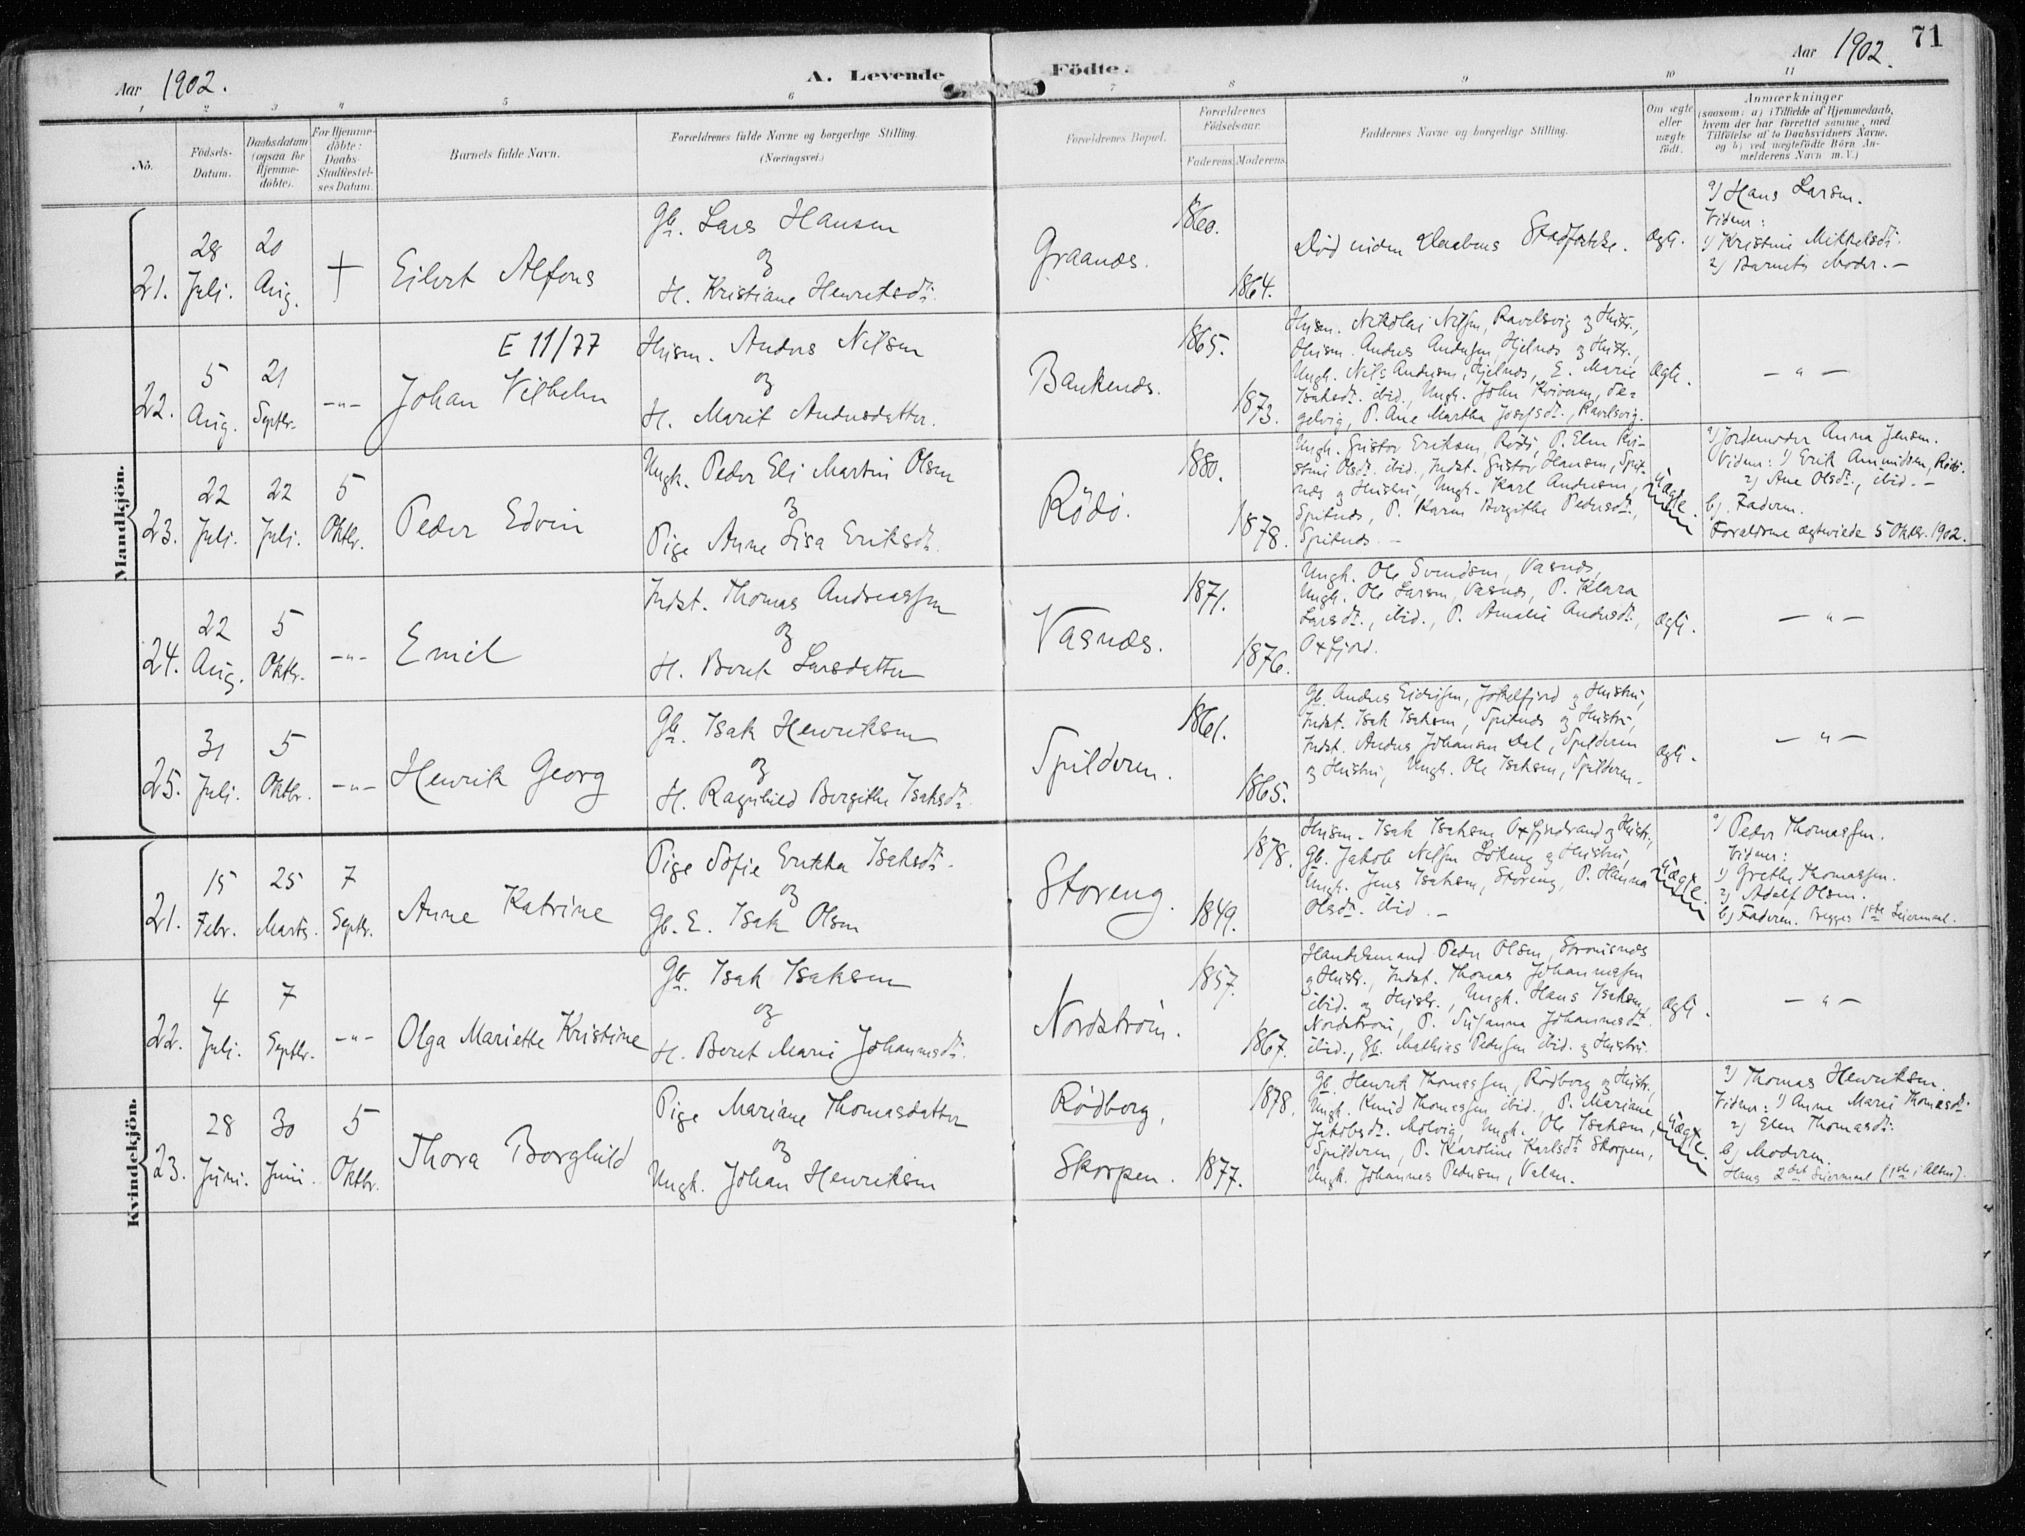 71
Aar 1902.
A. Levende Födte.
Aar 1902.
1 2 3 4 5 6 7 8 9 10 11
No.
Födsels-Datum.
Daabsdatum (ogsaa for Hjemme-döbte).
For Hjemme-döbte: Daabs-Stadfæstel-ses Datum.
Barnets fulde Navn.
Forældrenes fulde Navne og borgerlige Stilling.
(Næringsvei.)
Forældrenes Bopæl.
Forældrenes Födselsaar.
Faderens. Moderens.
Faddernes Navne og borgerlige Stilling.
Om ægte eller uægte födt.
Anmærkninger
(saasom: a) i Tilfælde af Hjemmedaab,
hvem der har forrettet samme, med
Tilföielse af to Daabsvidners Navne,
og b) ved uægtefödte Börn An-
melderens Navn m. V.)
Mandkjön.
21. 28 Juli. 20 Aug. †
Eilert Alfons
Gb. Lars Hansen
og
H. Kristiane Henriksdt.
Graanæs.
1860.
1864.
Død inden Daabens Stadfæstelse.
Ægte.
a) Hans Larsen.
Vidner:
1) Kristine Mikkelsdt.
2) Barnets Moder. —
22. 5 Aug. 21 Septbr. —"—
E 11/77
Johan Vilhelm
Husm. Anders Nilsen
og
H. Marit Andersdatter.
Bankenæs.
1865.
1873.
Husm. Nikolai Nilsen, Ravelsvig og Hustr.,
Husm. Anders Andersen, Hjelnæs og Hustr.,
Ungk. Nils Andersen, Hjelnæs, E. Marie
Isaksdt. ibid., Ungk. John
P. Ane Martha Josefsdt., Ravelsvig.
Ægte.
— " —
23. 22 Juli. 22 Juli. 5 Oktbr.
Peder Edvin
Ungk. Peder Eli Martin Olsen
og
Pige Anne Lisa Eriksdt.
Rödö.
1880.
1878.
Ungk. Gustav Eriksen, Rödö, P. Elen Kri-
stine Olsdt. ibid., Indst. Gustav Hansen, Spit-
næs og Hustru, Ungk. Karl Andersen,
Spitnæs, P. Karen Bergithe Pedersdt.,
Spitnæs. —
Uægte.
a) Jordemoder Anna Jensen.
Vidner: 1) Erik Amundsen, Rödö.
2) Ane Olsdt., ibid. —
b). Faderen.
Forældrene ægteviede 5 Oktbr. 1902.
24. 22 Aug. 5 Oktbr. —"—
Emil
Indst. Thomas Andreassen
og
H. Beret Larsdatter
Vasnæs.
1871.
1876.
Ungk. Ole Svendsen, Vasnæs,
Ungk. Ole Larsen, Vasnæs, P. Klara
Larsdt., ibid., P. Amalie Andersdt.,
Oxfjord.
Ægte.
— " —
25. 31 Juli. 5 Oktbr. —"—
Henrik Georg
Gb. Isak Henriksen
og
H. Ragnhild Bergithe Isaksdt.
Spilderen.
1861.
1865.
Gb. Anders Eidissen, Jökelfjord og Hustru,
Indst. Isak Isaksen, Spitnæs og Hustru,
Indst. Anders Johansen Dal, Spilderen
og Hustru, Ungk. Ole Isaksen, Spilderen.
Ægte.
— " —
Kvindekjön.
21. 15 Febr. 25 Marts. 7 Septbr.
Anne Katrine
Pige Sofie Erikka Isaksdt.
og
Gb. E. Isak Olsen
Storeng.
1878.
1849.
Husm. Isak Isaksen Oxfjordvand og Hustr.,
Gb. Jakob Nilsen Lökeng og Hustru,
Ungk. Jens Isaksen, Storeng, P. Hanna
Olsdt. ibid. —
Uægte.
a) Peder Thomassen.
Vidner:
1) Grethe Thomassen.
2) Adolf Olsen.
b) Faderen. Begges 1ste Leiermaal.
22. 4 Juli. 7 Septbr. —"—
Olga Mariette Kristine
Gb. Isak Isaksen
og
H. Beret Marie Johannesdt.
Nordström.
1857.
1867.
Handelsmand Peder Olsen,
og Hustr., Indst. Thomas Johannessen
ibid. og Hustr., Ungk. Hans Isaksen,
Nordström, P. Susanna Johannesdt.
ibid., Gb. Mathias Pedersen ibid. og Hustru.
Ægte.
— " —
23. 28 Juni. 30 Juni. 5 Oktbr.
Thora Borghild
Pige Mariane Thomasdatter
og
Ungk. Johan Henriksen
Rödberg,
Skorpen.
1878.
1877.
Gb. Henrik Thomassen, Rödberg og Hustr.,
Ungk. Knud Thomassen ibid., P. Mariane
Jakobsdt. Molvig, Ungk. Ole Isaksen,
Spilderen, P. Karoline Karlsdt. Skorpen,
Ungk. Johannes Pedersen, Valan.
Uægte.
a) Thomas Henriksen.
Vidner: 1) Anne Marie Thomasdt.
2) Elen Thomasdt.
b) Moderen.
Hans 2det Leiermaal (1ste i Alten).